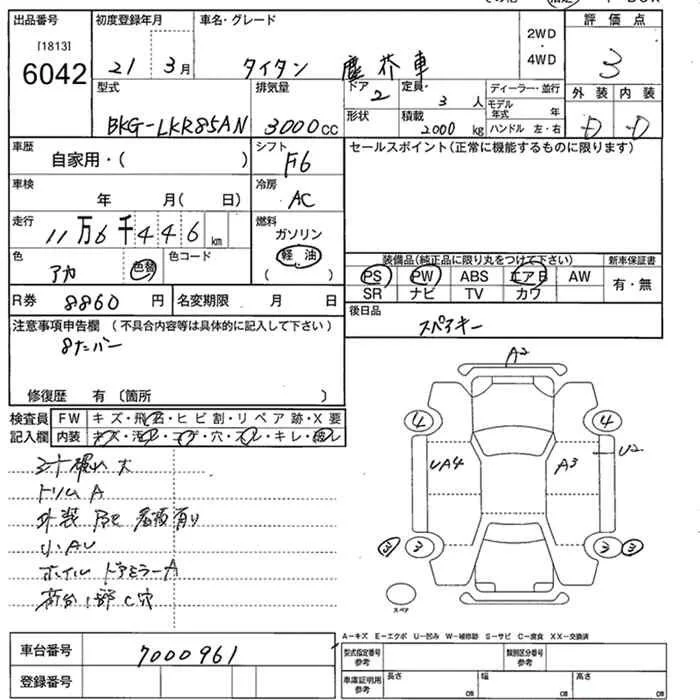 出品番号
[1813]
6042
初度登録年月
21 3月
車名・グレード
タイタン 塵芥車
2WD
・
4WD
評価点
3
外装 内装
D D
型式
BKG-LKR85AN
排気量
3000cc
ドア
2
定員・
3 人
ディーラー・並行
モデル年式 年
ハンドル 左・右
形状
積載
2000 kg
車歴
自家用・( )
シフト
F6
セールスポイント(正常に機能するものに限ります)
車検
年 月( 日)
冷房
AC
走行
11万6千446km
燃料
ガソリン
軽油
( )
色
アカ
色替
色コード
装備品(純正品に限り丸をつけて下さい)
PS PW ABS エアB AW
SR ナビ TV カワ
新車保証書
有・無
R券 8860 円
名変期限 月 日
後日品
スペアキー
注意事項申告欄 (不具合内容等は具体的に記入して下さい)
8ナンバー
修復歴 有 (箇所 )
検査員記入欄
FW キズ・飛石・ヒビ割・リペア跡・X要
内装 キズ・汚レ・コゲ・穴・スレ・キレ・臭レ
トリム A
小AU
ホイル ドアミラーA
荷台1部C穴
A2
4 4
UA4 A3 U2
3 3 3 3
スペア
A-キズ E-エクボ U-凹み W-補修跡 S-サビ C-腐食 XX-交換済
車台番号 7000961
登録番号
型式指定番号 参考
類別区分番号 参考
車庫証明用 参考
長さ cm
幅 cm
高さ cm